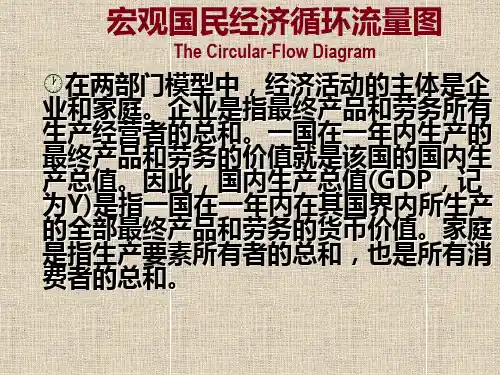 宏观国民经济循环流量图
The Circular-Flow Diagram
在两部门模型中，经济活动的主体是企
业和家庭。企业是指最终产品和劳务所有
生产经营者的总和。一国在一年内生产的
最终产品和劳务的价值就是该国的国内生
产总值。因此，国内生产总值(GDP，记
为Y)是指一国在一年内在其国界内所生产
的全部最终产品和劳务的货币价值。家庭
是指生产要素所有者的总和，也是所有消
费者的总和。